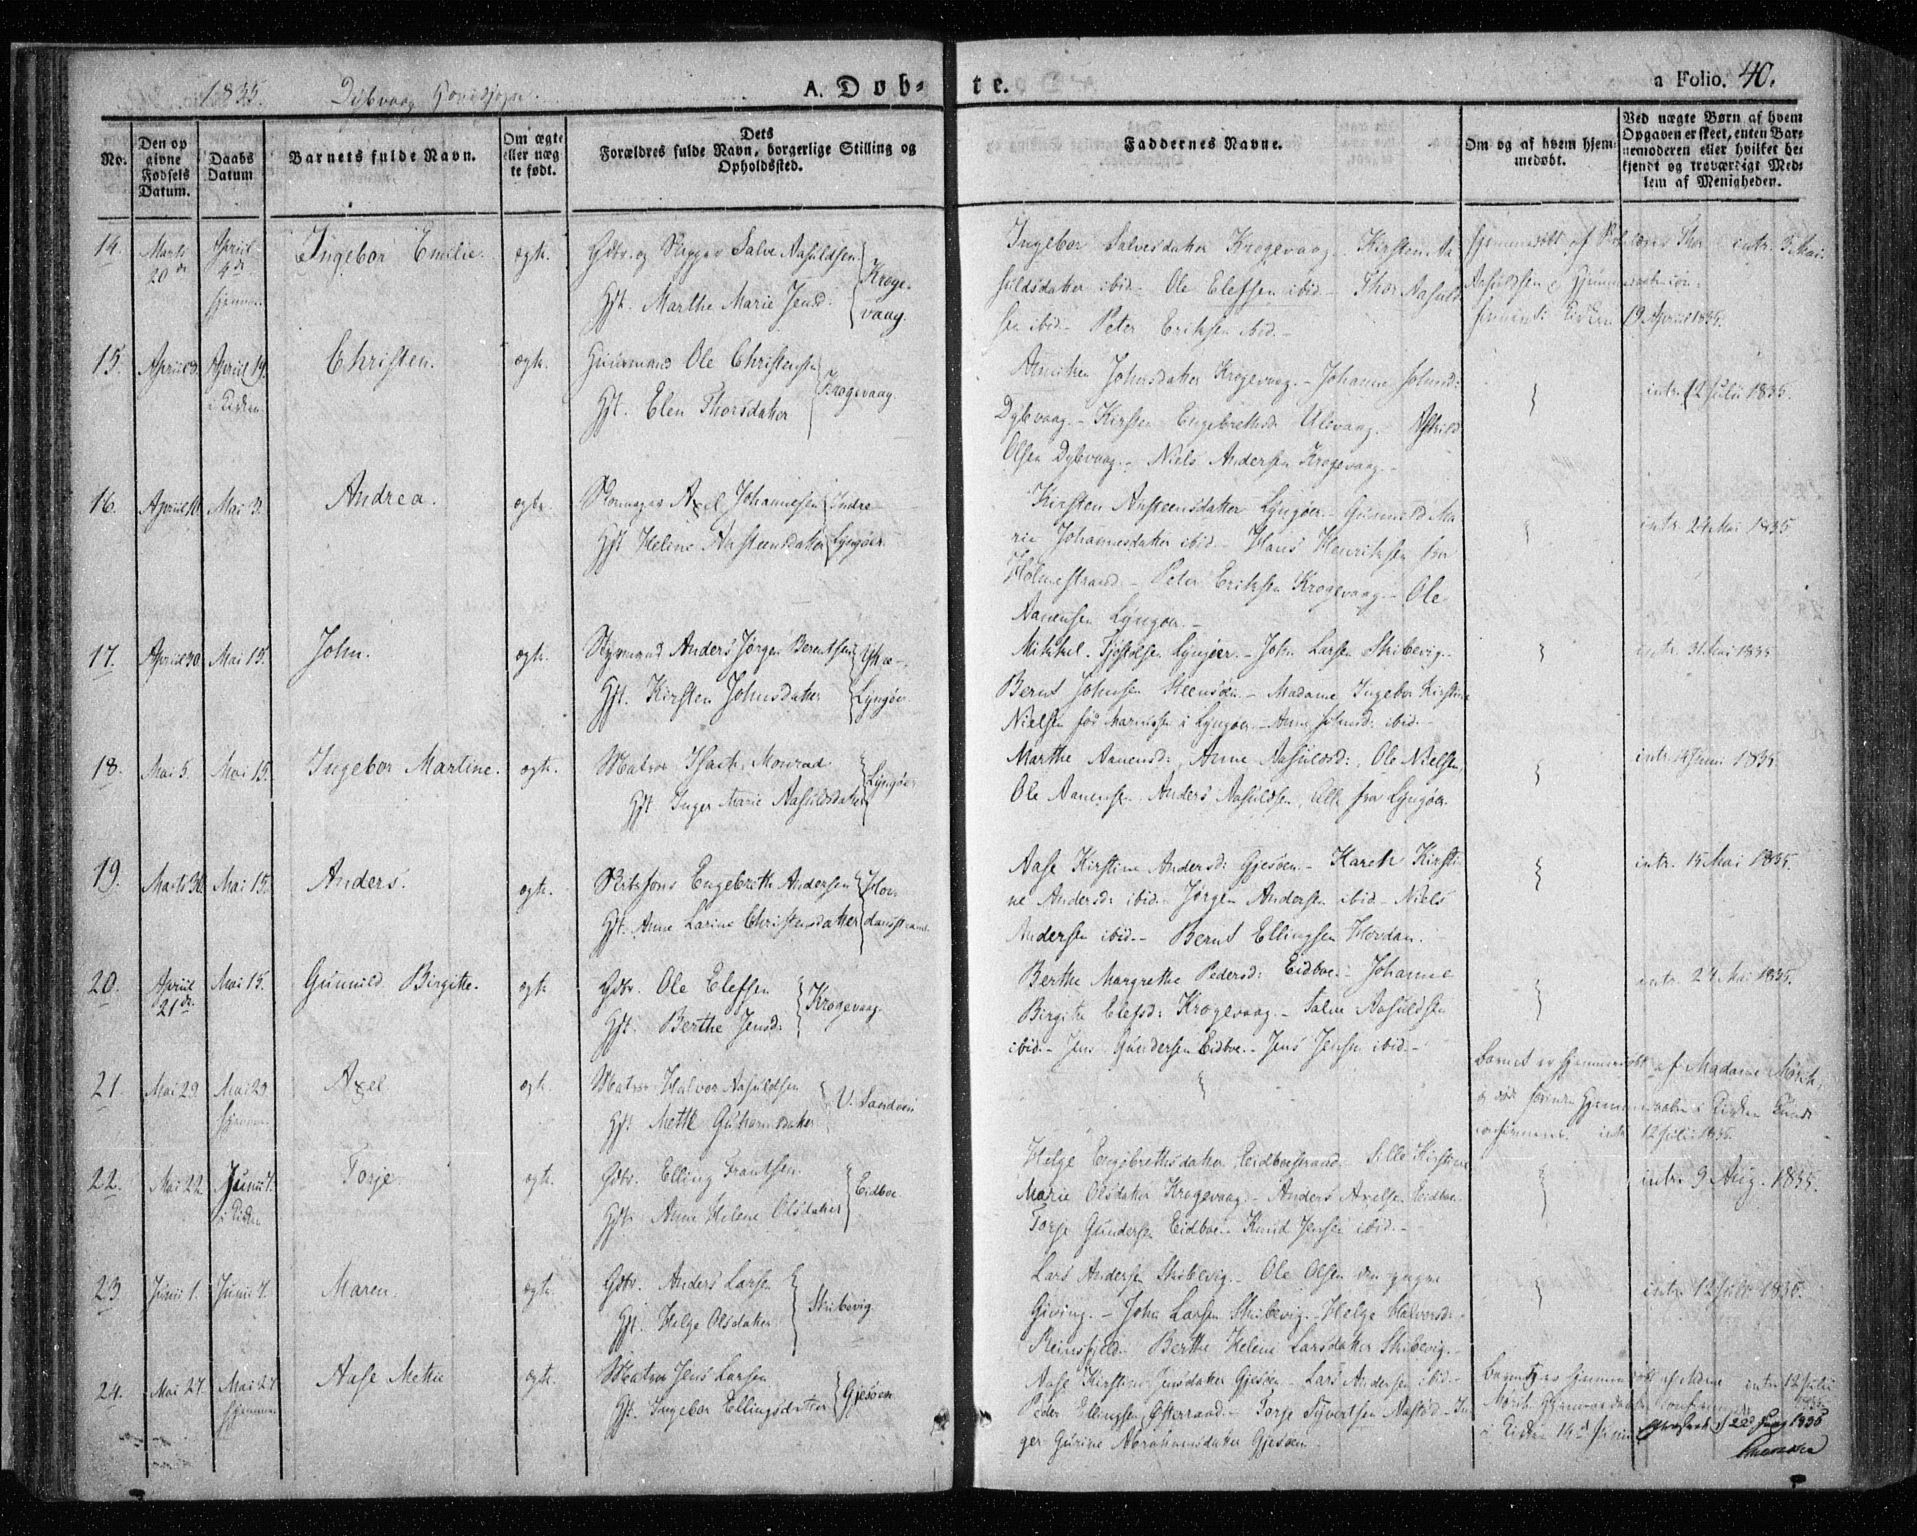 1835. Dybvaag Hovedsogn.
A. Døb-
te.
a Folio. 40.
No.
Den op
givne
Fødsels
Datum.
Daabs
Datum
Barnets fulde Navn.
Om ægte
eller uæg
te født.
Dets
Forældres fulde Navn, borgerlige Stilling og
Opholdssted.
Faddernes Navne.
Om og af hvem hjem-
medøbt.
Ved uægte Børn af hvem
Opgaven er skeet, enten Bar-
nemoderen eller hvilket be-
kjendt og troværdigt Med-
lem af Menigheden.
14.
Marts
20de
April
4de
hjemme
Ingebor Emilie.
ægte.
Gdbr. og Skipper Salve Aasuldsen
Hst. Marthe Marie Jensd.
Kroge-
vaag.
Ingebor Salvesdatter Krogevaag. Kirsten Aa-
suldsdatter ibid.- Ole Elefsen ibid- Thor Aasuld-
sen ibid.- Peter Eriksen ibid.-
hjemmedøbt af Thor
Aasuldsen
i Kirken 19 April 1835.
intr. 3 Mai.
15.
April
April 19.
i Kirken
Christen.
ægte.
Huusmand Ole Christensen
Hst. Elen Thorsdatter
Krogevaag.
Anichen Johnsdatter Krogevaag.- Johanne Johnsd:
Dybvaag.- Kirsten Engebrethsd: Ulevaag.
Olsen Dybvaag.- Niels Andersen Krogevaag.-
intr. 12 Julii 1835.
16.
April
Mai 3.
Andrea.
ægte.
Axel Johannesen
Hst. Helene Aasteensdatter
Indre
Lyngøer.
Kirsten Aasteensdatter Lyngøer- Gunnild Ma
rie Johannesdatter ibid.- Hans Henriksen fra
Holmestrand.- Peter Eriksen Krogevaag.- Ole
Aanensen Lyngøer.-
intr. 24 Mai 1835
17.
April 30.
Mai 15.
John.
ægte.
Styrmand Anders Jørgen Berentsen
Hst. Kirsten Johnsdatter
Ytre-
Lyngøer
Mikkel Lyngøer.- John Larsen Skibevig.-
Bernt Johnsen Steensøen.- Madame Ingebor Kirstine
Nielsen født i Lyngøer.- Anne Johnsd: ibid.-
intr. 31 Mai 1835
18.
Mai 5.
Mai 15.
Ingebor Martine.
ægte.
Matros Isach Monrad
Hst. Inger Marie Aasuldsdatter
Lyngøer
Marthe Aanensd:, Anne Aasuldsd:, Ole Nielsen,
Ole Aanensen, Anders Aasuldsen, Alle fra Lyngøer.
intr. 14 Juni 1835.
19.
Marts 30.
Mai 15.
Anders.
ægte.
Engebreth Andersen
Hst. Anne Larine Christensdatter
Hov-
dansstrand.
Aase Kirstine Andersd: Gjesøen.- Karen Kirsti-
ne Andersd: ibid.- Jørgen Andersen ibid.- Niels
Andersen ibid.- Bernt Ellingsen Hovdan.
intr. 15 Mai 1835.
20.
April
21de
Mai 15.
Gunnild Birgitte.
ægte.
Gdbr. Ole Elefsen
Hst. Berthe Jensd:
Krogevaag.
Berthe Margrethe Pedersd: Eidboe.- Johanne
Birgitte Elefsd: Krogevaag.- Salve Aasuldsen
ibid.- Jens Gundersen Eidboe.- Jens Jensen ibid.-
intr. 24 Mai 1835.
21.
Mai 29.
Mai 29.
hjemme
Axel
ægte.
Matros Halvor Aasuldsen
Hst. Mette
Barnet er hjemmedøbt af Madame Mørch,
og døde forinden i Kirken kunde
confirmeres. intr. 12 Julii 1835.
22.
Mai 22.
Junii 7.
i Kirken
Torje
ægte.
Gdbr. Elling Frantsen
Hst. Anne Helene Olsdatter
Eidboe
Helge Engebrethsdatter Eidboestrand. Sille Kirstine
Marie Olsdatter Krogevaag.- Anders Axelsen Eidboe.
Torje Gundersen Eidboe.- Knud Jensen ibid.-
intr. 9 Aug. 1835.
23.
Junii 1.
Junii 7.
Maren.
ægte.
Gdbr. Anders Larsen
Hst. Helge Olsdatter
Skibevig
Lars Andersen Skibevig.- Ole Olsen den yngre
Giving.- John Larsen Skibevig.- Helge Halvorsd:
Reinsfjeld.- Berthe Helene Larsdatter Skibevig.-
intr. 12 Julii 1835.
24.
Mai 27.
Mai 27.
hjemme
Aase Mette
ægte.
Matros Jens Larsen
Hst. Ingebor Ellingsdatter
Gjesøen
Aase Kirstine Jensdatter Gjesøen.- Lars Andersen ibid.-
Peder Ellingsen Østeraad.- Torje Syvertsen - In-
ger Gurine Abrahamsdatter Gjesøen.
Barnet er hjemmedøbt af Mdme
Mørch
i Kirken 14de Junii
intr. 12 Julii
1835.